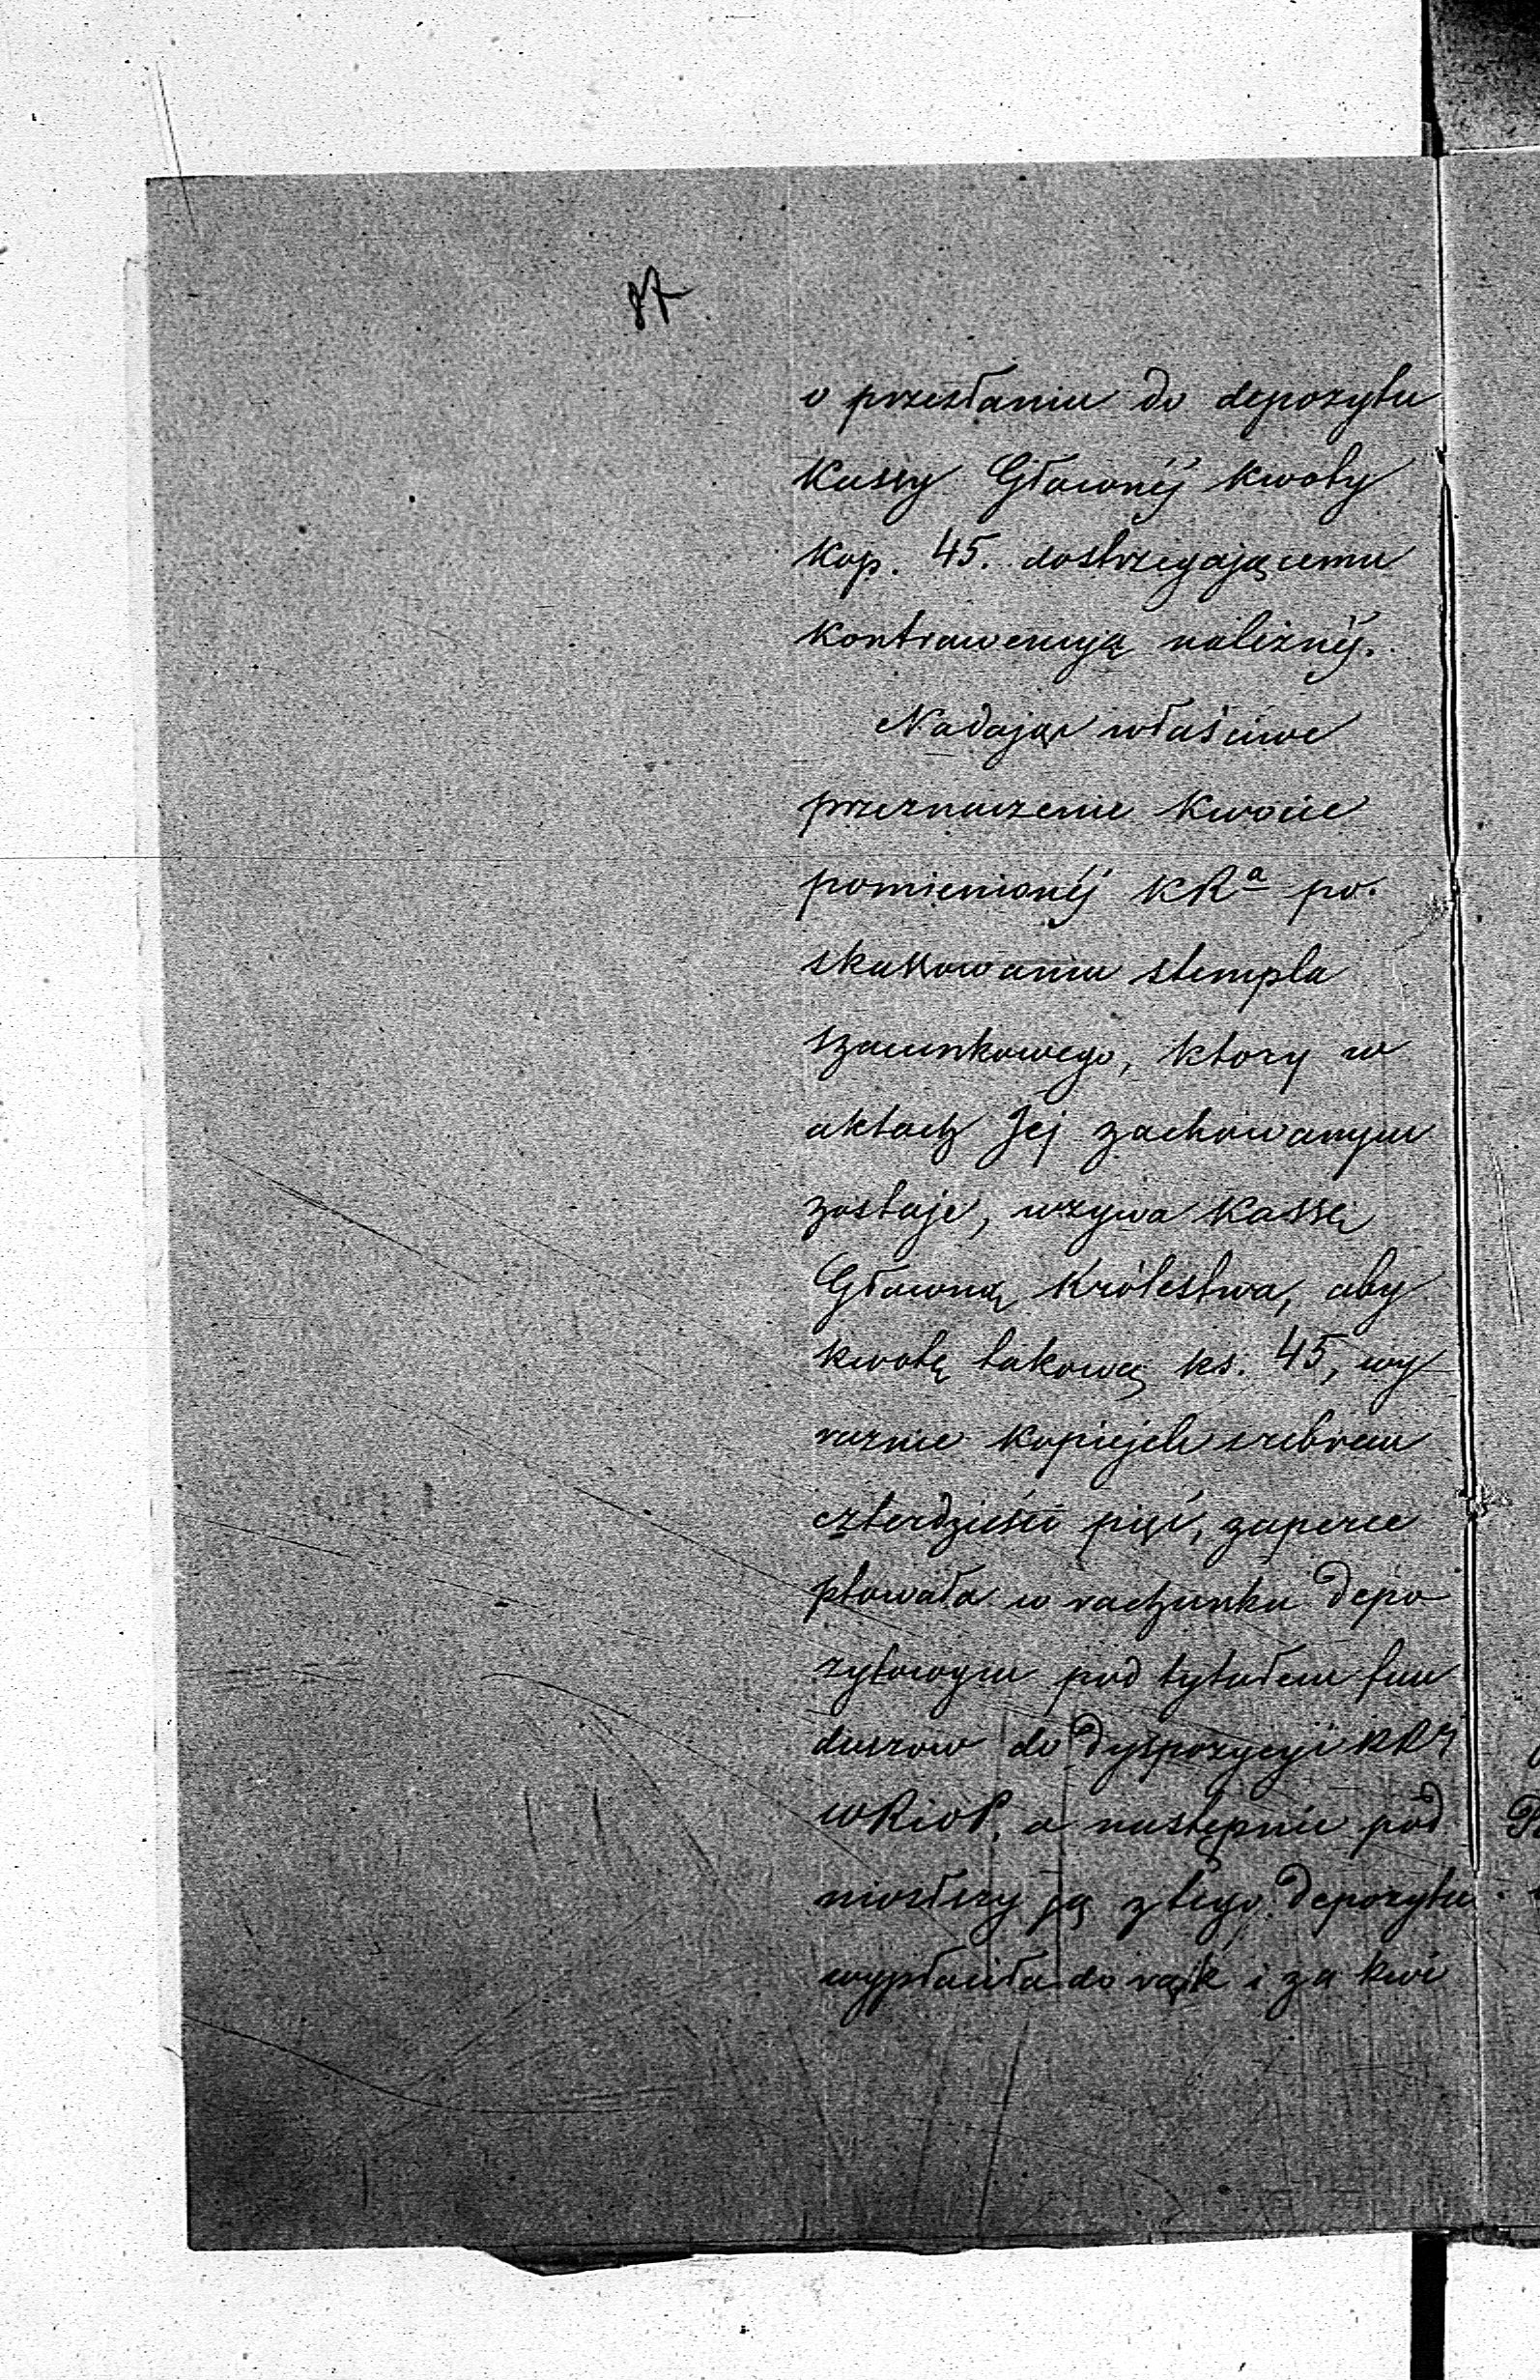 87
o przesłaniu do depozytu
Kassy Głównéj kwoty
kop. 45. dostrzegającemu
kontrawencyą należnéj.
Nadając właściwe
przeznaczenie kwocie
pomienionéj KRa po
skassowaniu stempla
szacunkowego, ktory w
aktach Jej zachowanym
zostaje, wzywa Kassę
Głowną Królestwa, aby
kwotę takową ks. 45, wy
raznie kopiejek srebrem
czterdzieści pięć, zaperce
ptowała w rachunku depo
zytowym pod tytułem fun
duszow do dyspozycyi KRz
WRiOP, a następnie pod
niosłszy ją z tego depozytu
wypłaciła do rąk i za kwi